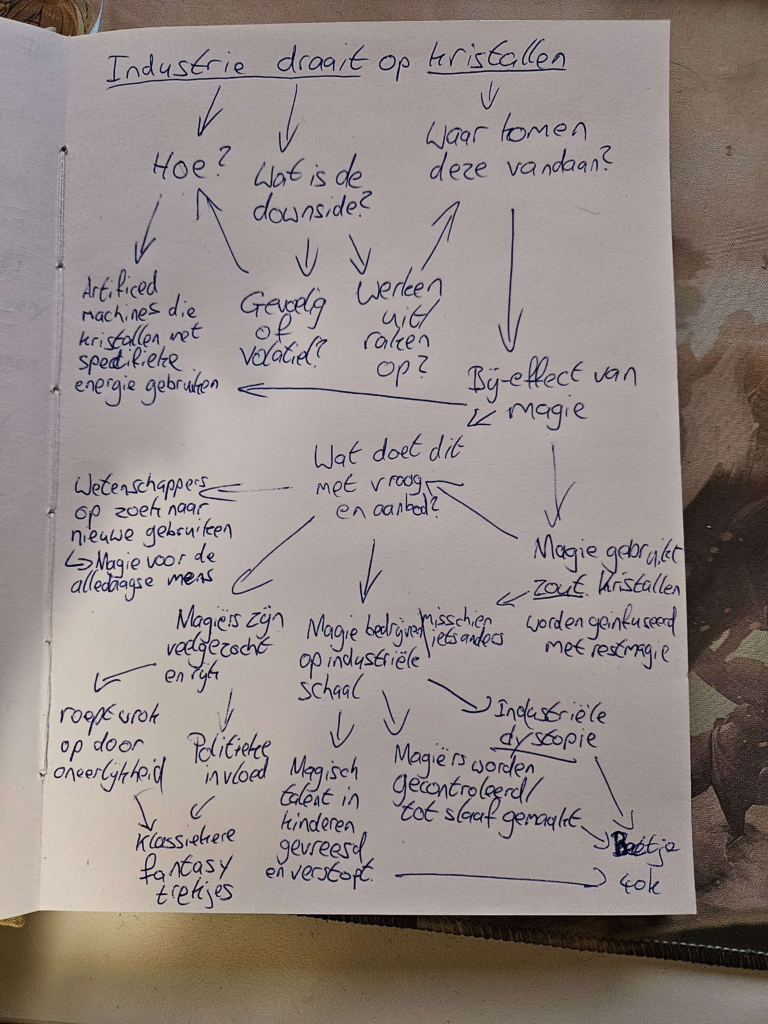 Industrie draait op kristallen
Hoe?
Wat is de
downside?
Waar komen
deze vandaan?
Artificed
machines die
kristallen met
specifieke
energie gebruiken
Gevoelig
of
volatiel?
Werken
uit/
raken
op?
Bij-effect van
magie
Wat doet dit
met vraag
en aanbod?
Wetenschappers
op zoek naar
nieuwe gebruiken
↳ Magie voor de
alledaagse mens
Magie gebruikt
zout. Kristallen
worden geinfuseerd
met restmagie
misschien
iets anders
Magiërs zijn
veelgezocht
en rijk
Magie bedrijven
op industriële
schaal
roept wrok
op door
oneerlijkheid
Politieke
invloed
Klassiekere
fantasy
trekjes
Magisch
talent in
kinderen
gevreesd
en verstopt.
Magiërs worden
gecontroleerd/
tot slaaf gemaakt
Industriële
dystopie
Beetje
40k